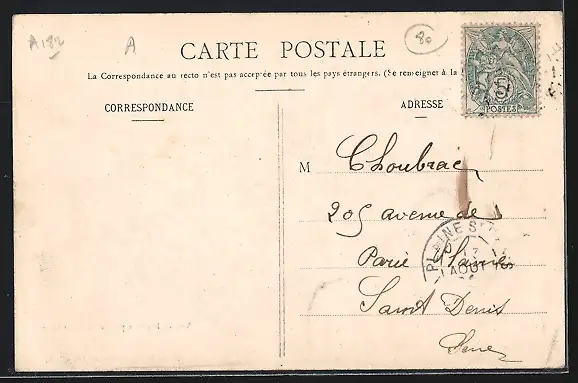 A182
A
80
CARTE POSTALE
La Correspondance au recto n'est pas acceptée par tous les pays étrangers. (Se renseigner à la
5
POSTES
CORRESPONDANCE
ADRESSE
M Choubrac
205 avenue de
Paris Plaine
Saint Denis
Seine
PLAINE ST
AOUT